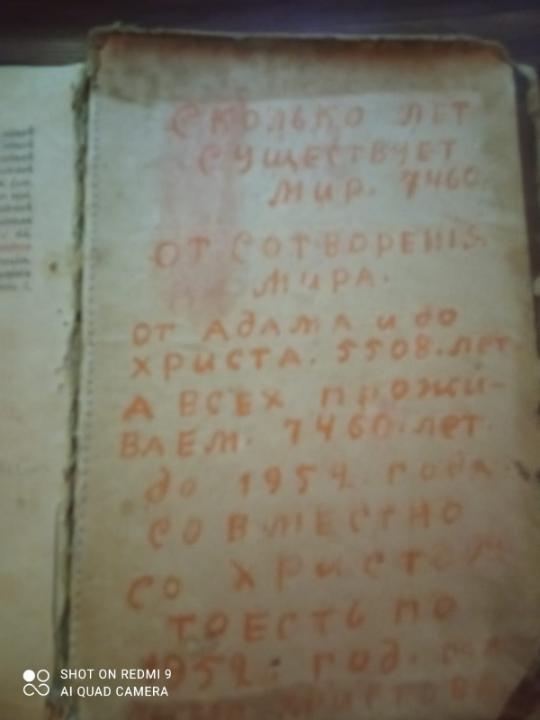 СКОЛЬКО ЛЕТ
СУЩЕСТВУЕТ
МИР. 7460
ОТ СОТВОРЕНІЯ
МИРА.
ОТ АДАМА И ДО
ХРИСТА. 5508. ЛЕТ
А ВСЕХ ПРОЖИ-
ВАЕМ. 7460. ЛЕТ.
до 1952. года.
СОВМЕСТНО
СО ХРИСТОМ
ТОЕСТЬ ПО
1952. год.
SHOT ON REDMI 9
AI QUAD CAMERA